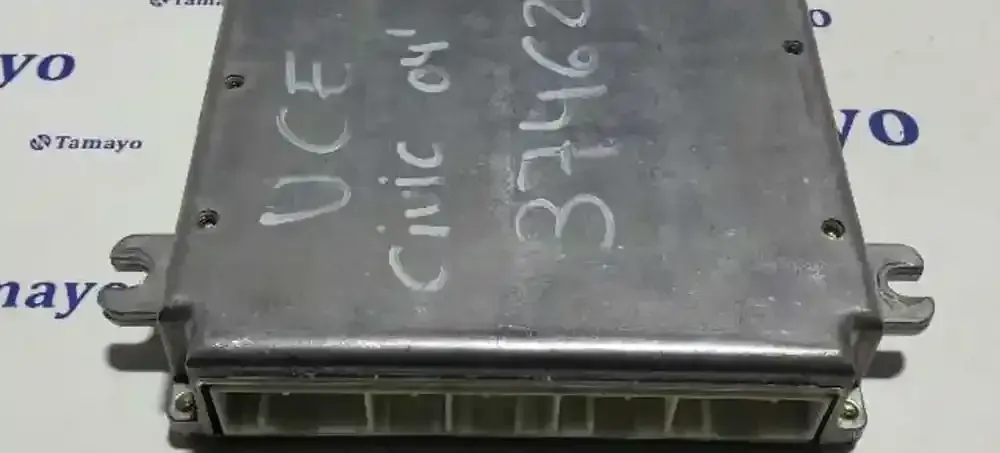 Tamayo
yo
Tamayo
mayo
UCE
Civic 04'
37462
yo